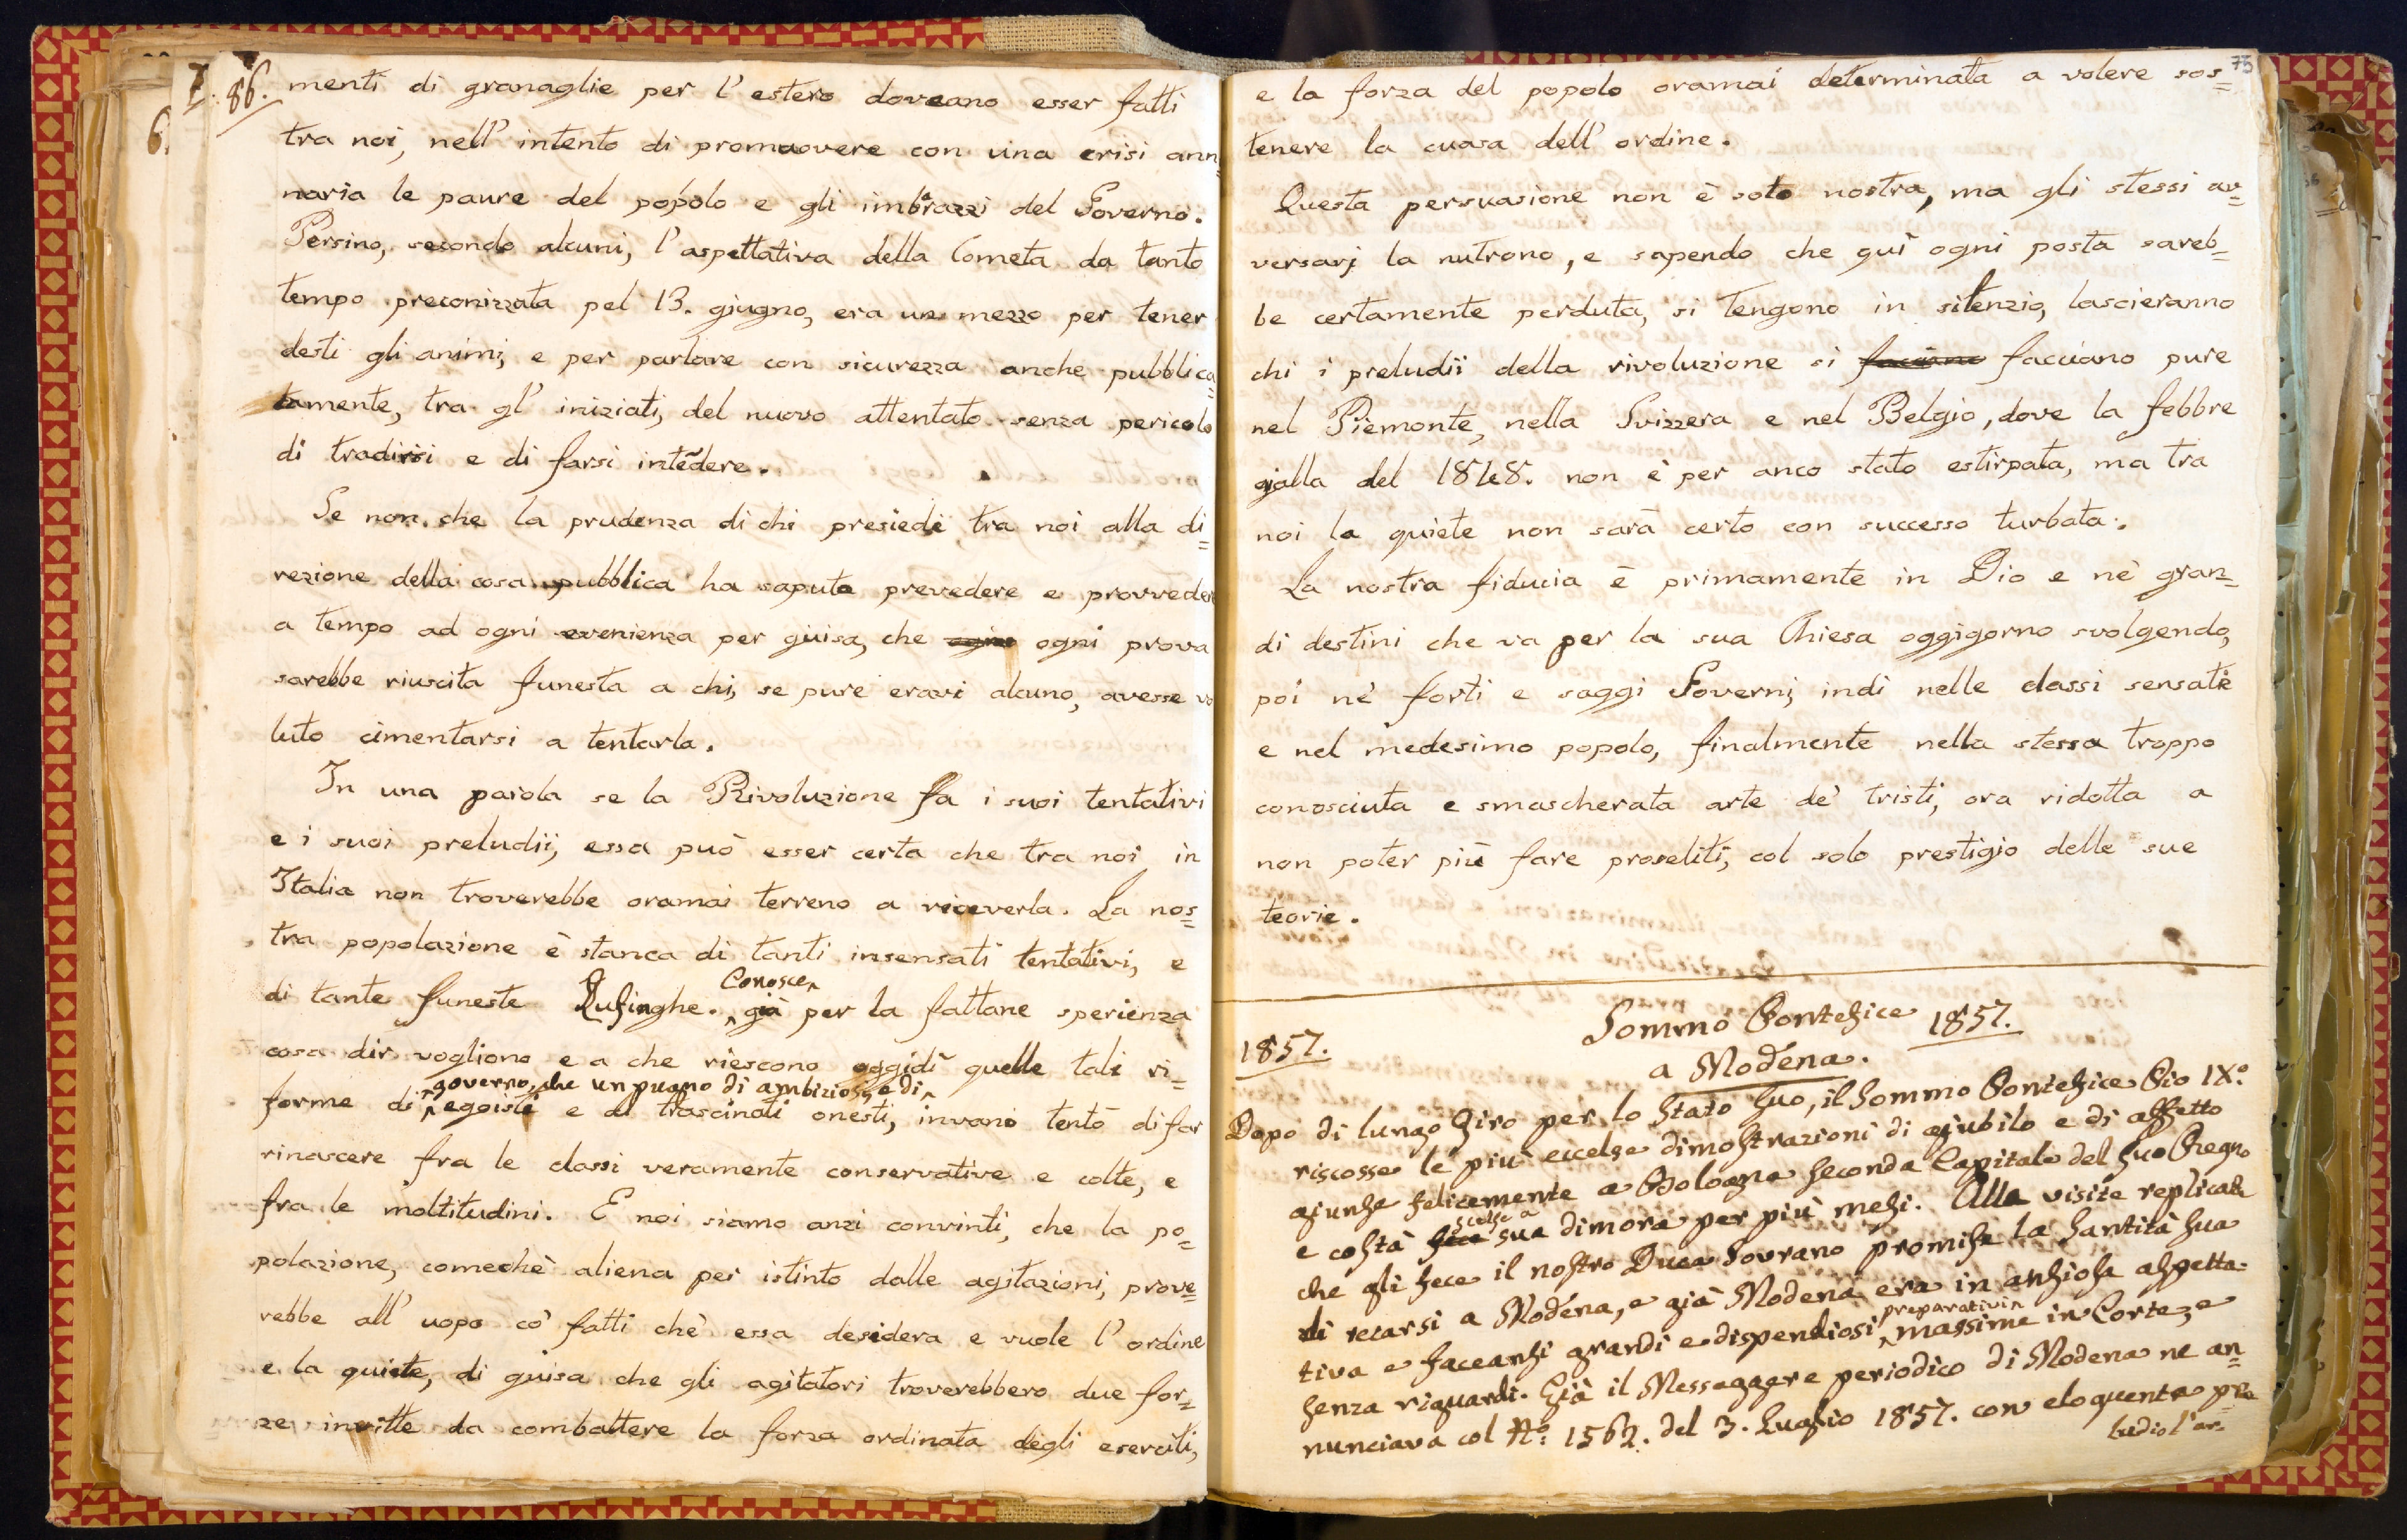 7. 86. menti di granaglie per l' estero doveano esser fatti
6.
tra noi, nell' intento di promuovere con una crisi ann
naria le paure del popolo e gli imbrazzi del Governo.
Persino, secondo alcuni, l' aspettativa della Cometa da tanto
tempo preconizzata pel 13. giugno, era un mezzo per tener
desti gli animi, e per parlare con sicurezza anche pubblica=
tamente, tra gl' iniziati, del nuovo attentato senza pericolo
di tradirsi e di farsi intẽdere.
Se non che la prudenza di chi presiede tra noi alla di=
rezione della cosa pubblica ha saputo prevedere e provveder
a tempo ad ogni evenienza per guisa, che ogni prova
sarebbe riuscita funesta a chi, se pure eravi alcuno, avesse vo
luto cimentarsi a tentarla.
In una parola se la Rivoluzione fa i suoi tentativi
e i suoi preludii, essa può esser certa che tra noi in
Italia non troverebbe oramai terreno a riceverla. La nos=
tra popolazione è stanca di tanti insensati tentativi, e
di tante funeste Lusinghe. Conosce già per la fattane sperienza
cosa dir vogliono e a che riescono oggidì quelle tali ri=
forme di governo, che un pugno di ambiziosi, e di
egoisti e di trascinati onesti, invano tentò di far
rinascere fra le classi veramente conservative e colte, e
fra le moltitudini. E noi siamo anzi convinti, che la po=
polazione, comechè aliena per istinto dalle agitazioni, prove=
rebbe all' uopo co' fatti chè essa desidera e vuole l' ordine
e la quiete, di guisa che gli agitatori troverebbero due for=
ze invitte da combattere la forza ordinata degli eserciti,
73
e la forza del popolo oramai determinata a volere sos=
tenere la cuasa dell' ordine.
Questa persuasione non è solo nostra, ma gli stessi av=
versarj la nutrono, e sapendo che quì ogni posta sareb=
be certamente perduta, si tengono in silenzio, lascieranno
chi i preludii della rivoluzione si facciano facciano pure
nel Piemonte, nella Svizzera e nel Belgio, dove la febbre
gialla del 1848. non è per anco stato estirpata, ma tra
noi la quiete non sarà certo con successo turbata.
La nostra fiducia è primamente in Dio e ne' gran=
di destini che va per la sua Chiesa oggigorno svolgendo,
poi ne' forti e saggi Governi, indi nelle classi sensate
e nel medesimo popolo, finalmente nella stessa troppo
conosciuta e smascherata arte de' tristi, ora ridotta a
non poter più fare proseliti, col solo prestigio delle sue
teorie.
Sommo Pontefice 1857.
1857.
a Modena.
Dopo di lungo Giro per lo Stato suo, il Sommo Pontefice Pio IX.º
riscosse le più eccelse dimostrazioni di giubilo e di affetto
giunse felicemente a Bologna seconda Capitale del suo Regno
e costà fece scelse a sua dimora per più mesi. Alle visite replicate
che gli fece il nostro Duca Sovrano promise la Santità sua
di recarsi a Modena, e già Modena era in ansiosa aspetta=
tiva e faceansi grandi e dispendiosi preparativi massime in Corte, e
senza riguardi. Già il Messaggere periodico di Modena ne an=
nunciava col Nº: 1562. del 3. Luglio 1857. con eloquente pre
ludio l'ar=